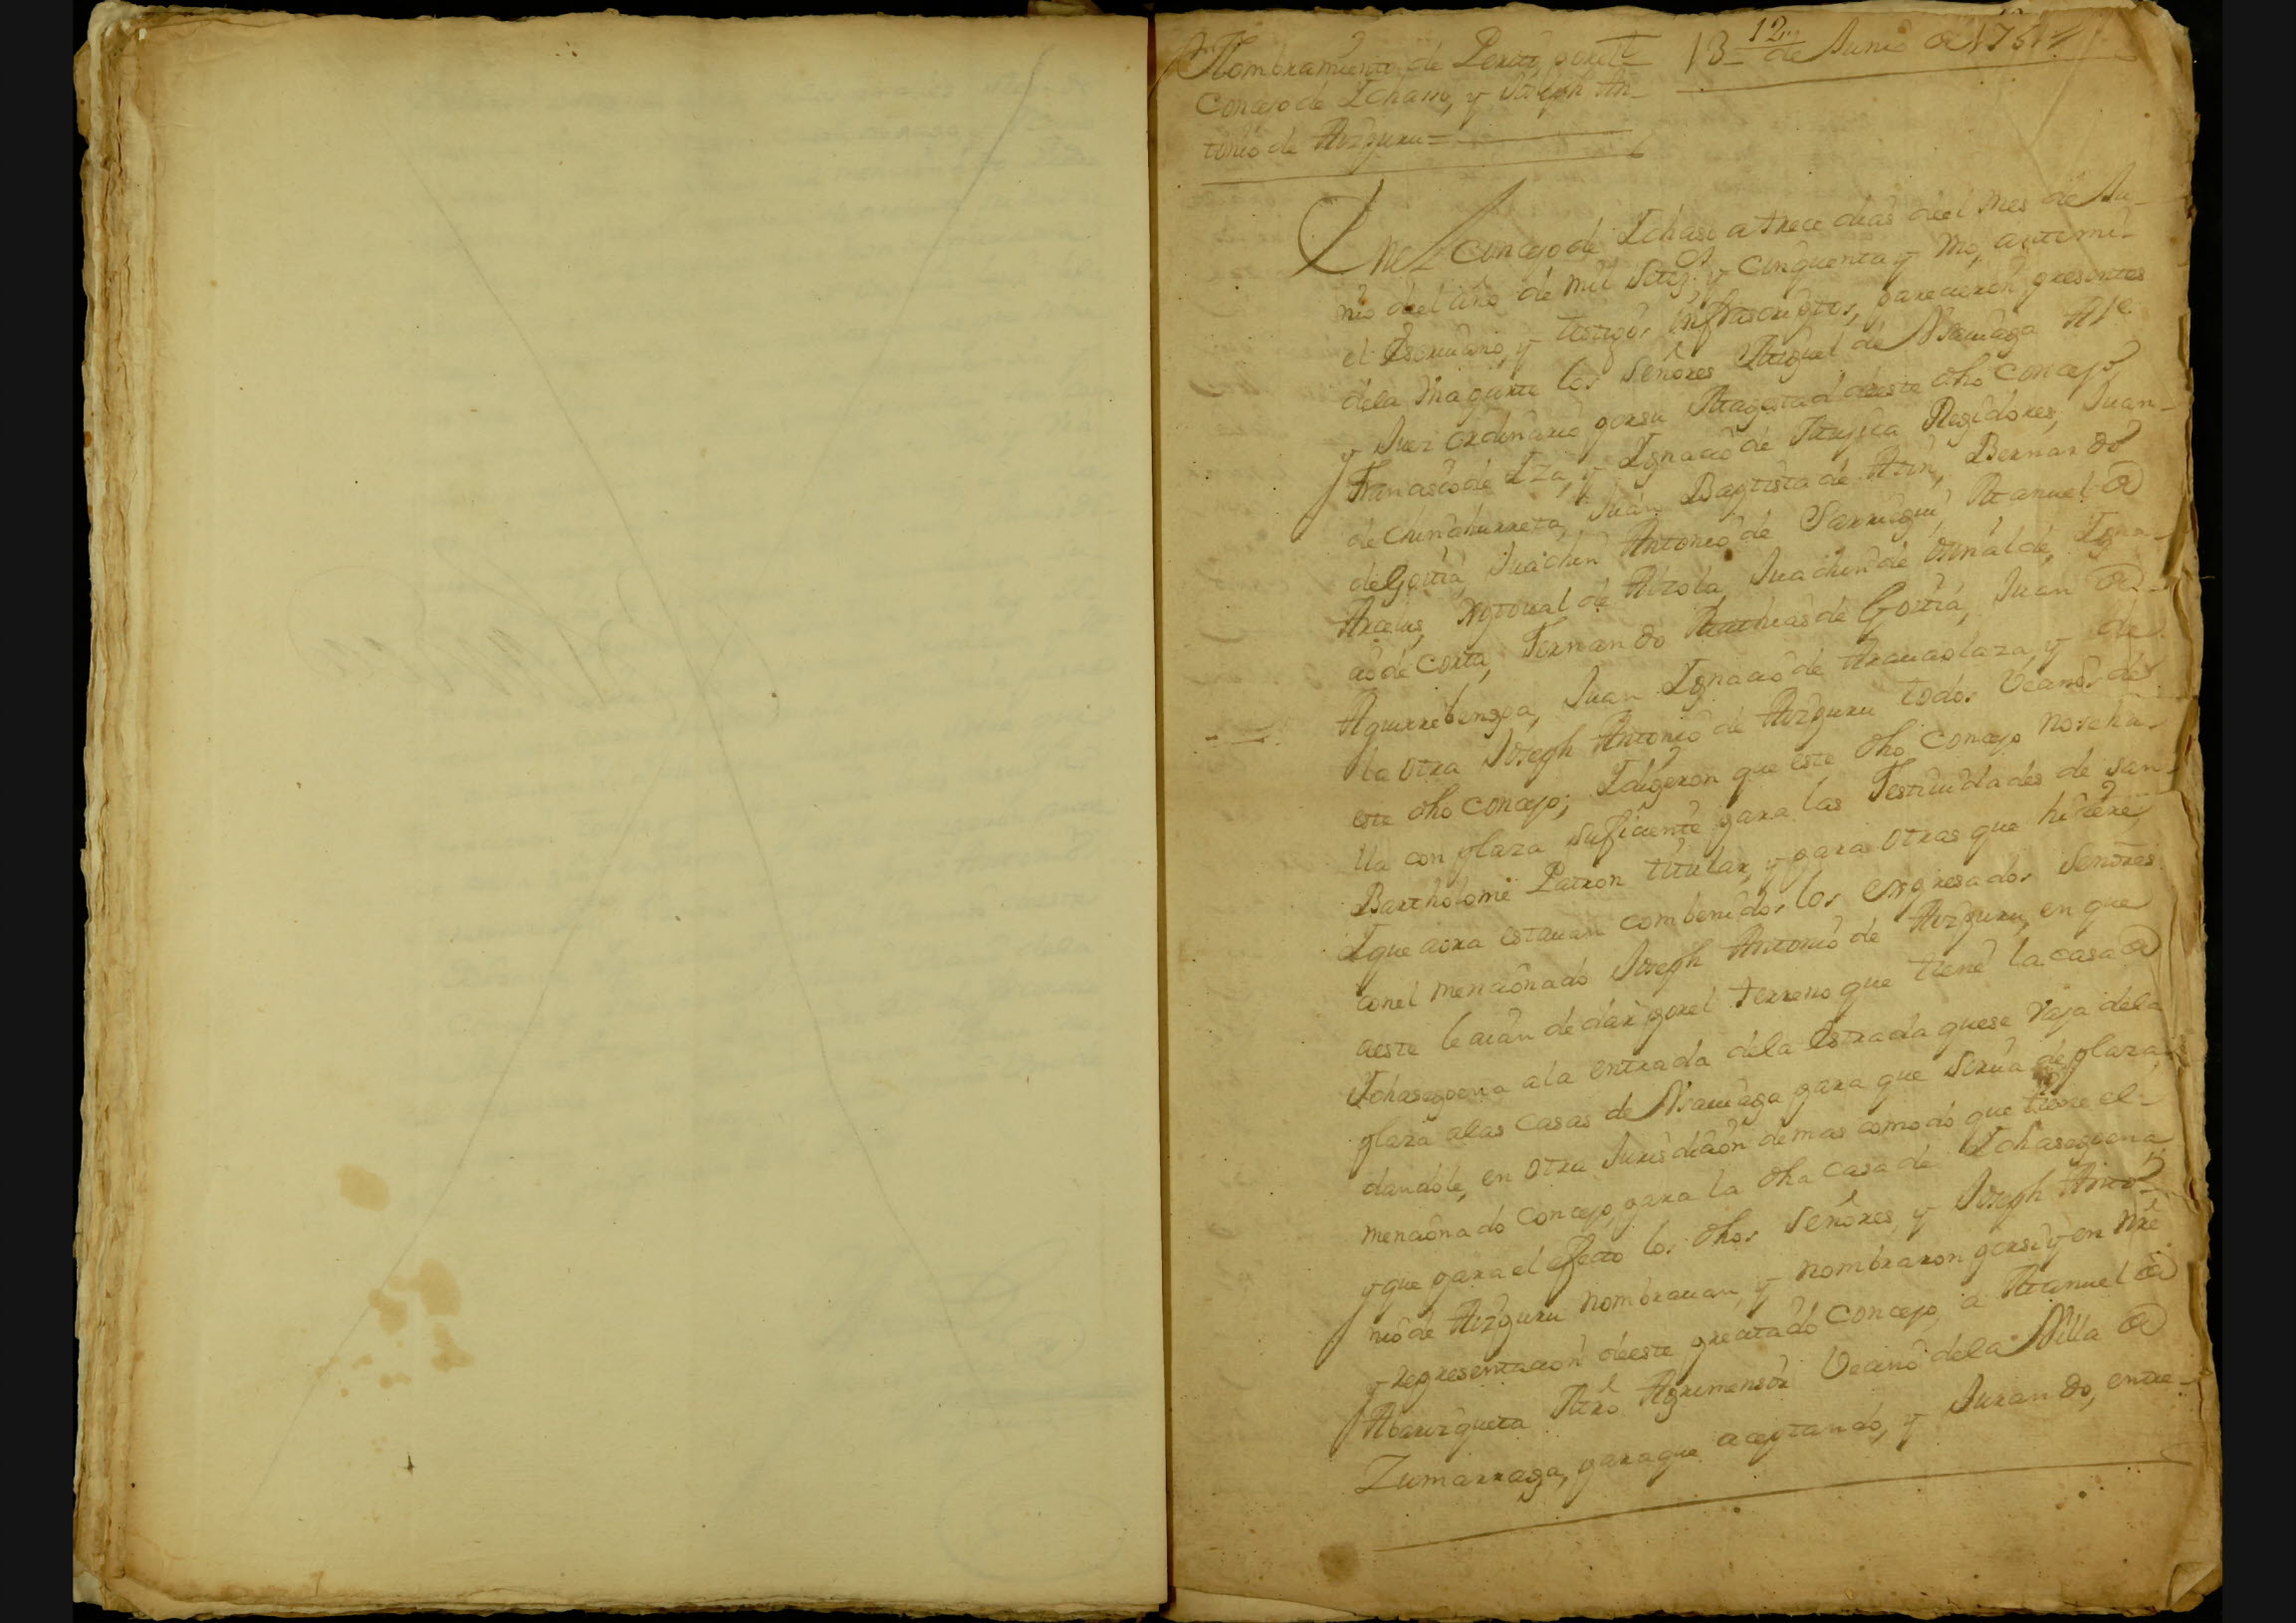 Nombramiento de Perito por el
Concejo de Ichaso, y Joseph An-
tonio de Aizpuru =
12
13 de Junio de 1751
En el Concejo de Ichaso a trece dias deel mes de Ju-
nio deel año de mil Setez.os y Cinquenta y uno, ante mi
el Escriuano, y testigos infrascriptos, parecieron presentes
dela una parte los Señores Miguel de Alcalde
y Juez ordinario por su Magestad deeste dho Concejo,
Francisco de Iza, y Ignacio de Mujica Regidores, Juan
de Chinchurreta, Juan Baptista de Asin, Bernardo
de Goitia, Juachin Antonio de Sarriegui, Manuel de
Arceluz, Xptoual de Alzola, Juachin de Igna-
cio de Corta, Fernando Mathias de Goitia, Juan de
Aguirrebengoa, Juan Ignacio de Aramaolaza, y de
la otra Joseph Antonio de Aizpuru todos Vecinos de
este dho Concejo; I digeron que este dho Concejo no se ha-
lla con plaza suficiente para las Festiuidades de San
Bartholome Patron titular, y para otras que hiciere,
I que aora estauan combenidos los expresados Señores
con el mencionado Joseph Antonio de Aizpuru, en que
a este le aian de dar por el terreno que tiene la casa de
Ichasogoena ala entrada dela Estrada que se vaja dela
plaza alas Casas de para que Sirua de plaza,
dandole, en otra Jurisdicion demas comodo que tiene el
mencionado Concejo, para la dha casa de Ichasogoena
y que para el efecto los dhos Señores, y Joseph Anto-
nio de Aizpuru nombrauan, y nombraron por si y en nre
y representacion deeste precitado Concejo, a Manuel de
Abarizqueta Mro Agrimensor Vecino dela Villa de
Zumarraga, para que aceptando, y Jurando, entre-